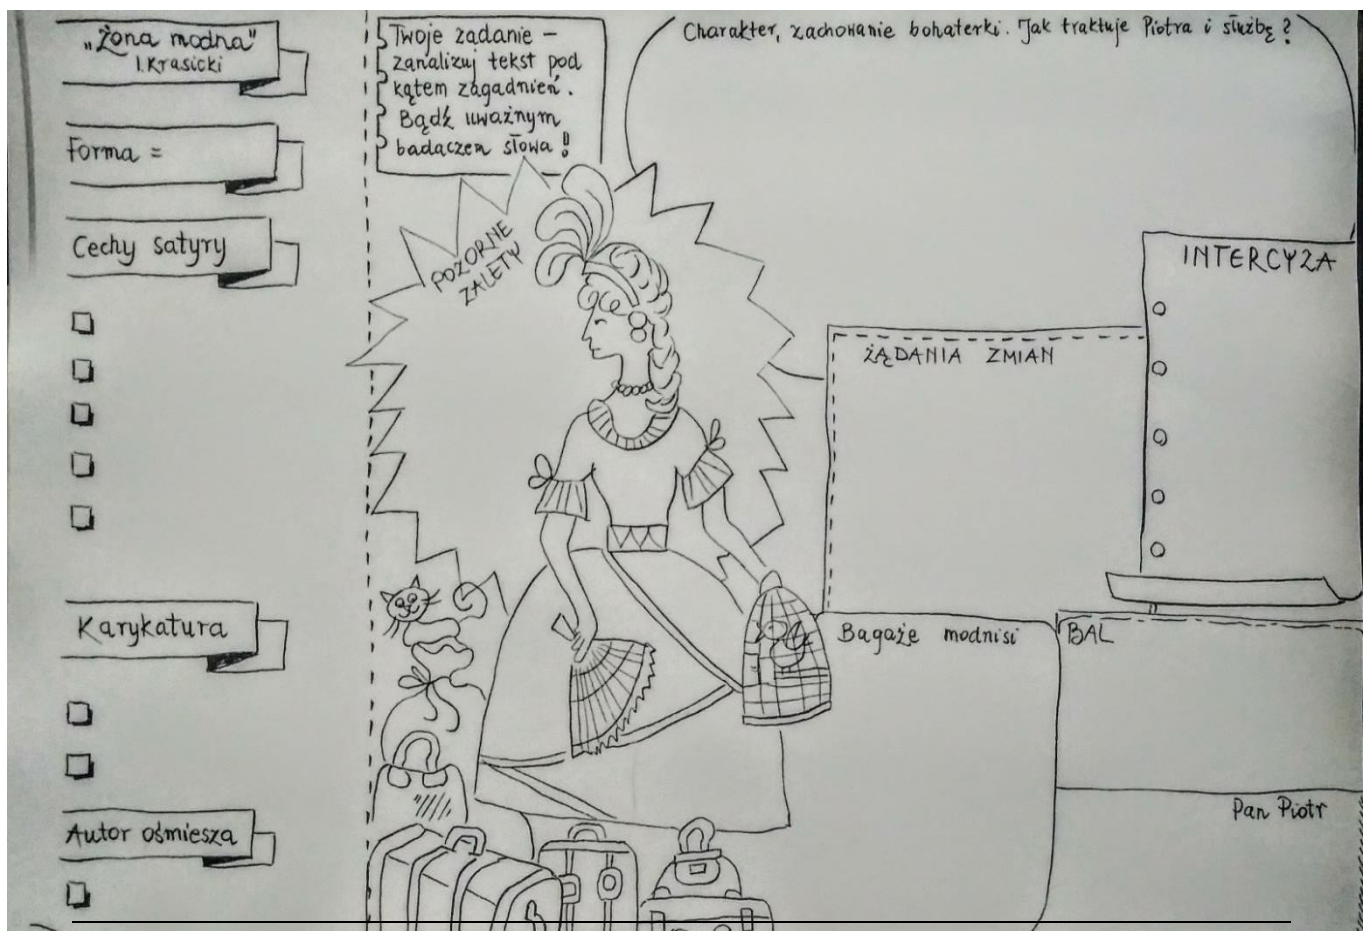 „Żona modna"
I. Krasicki
Forma =
Cechy satyry
Karykatura
Autor ośmiesza
Twoje zadanie –
zanalizuj tekst pod
kątem zagadnień.
Bądź uważnym
badaczem słowa!
Charakter, zachowanie bohaterki. Jak traktuje Piotra i służbę?
POZORNE
ZALETY
INTERCYZA
ŻĄDANIA ZMIAN
Bagaże modnisi
BAL
Pan Piotr